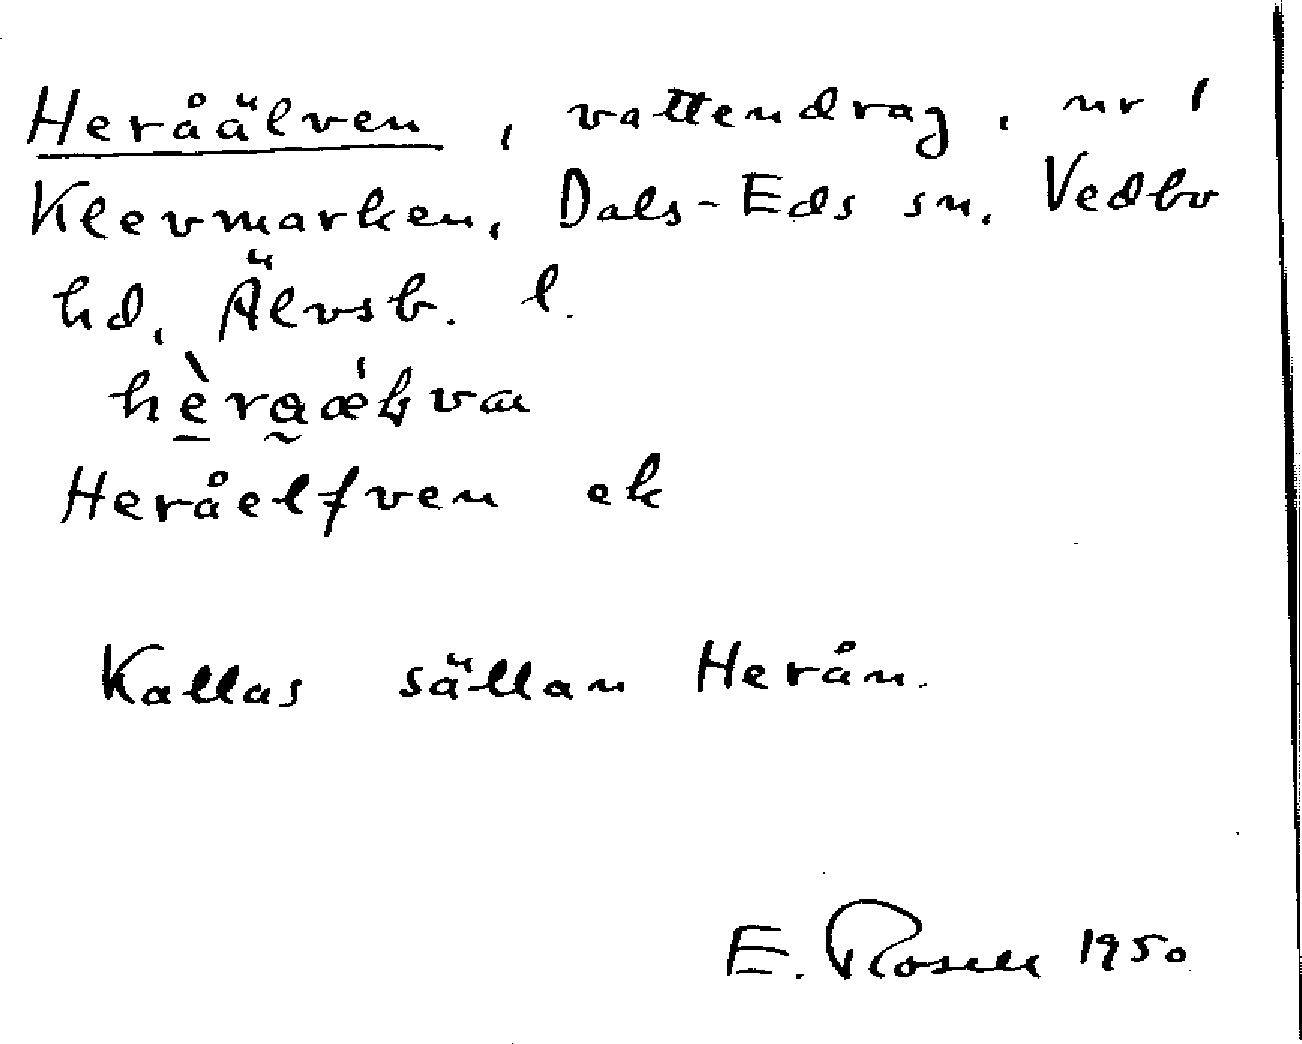 Heråälven, vattendrag, nr 1
Klevmarken, Dals-Eds sn, Vedbo
hd, Älvsb. l.
Heråelfven ek
Kallas sällan Herån.
E. Rosell 1950